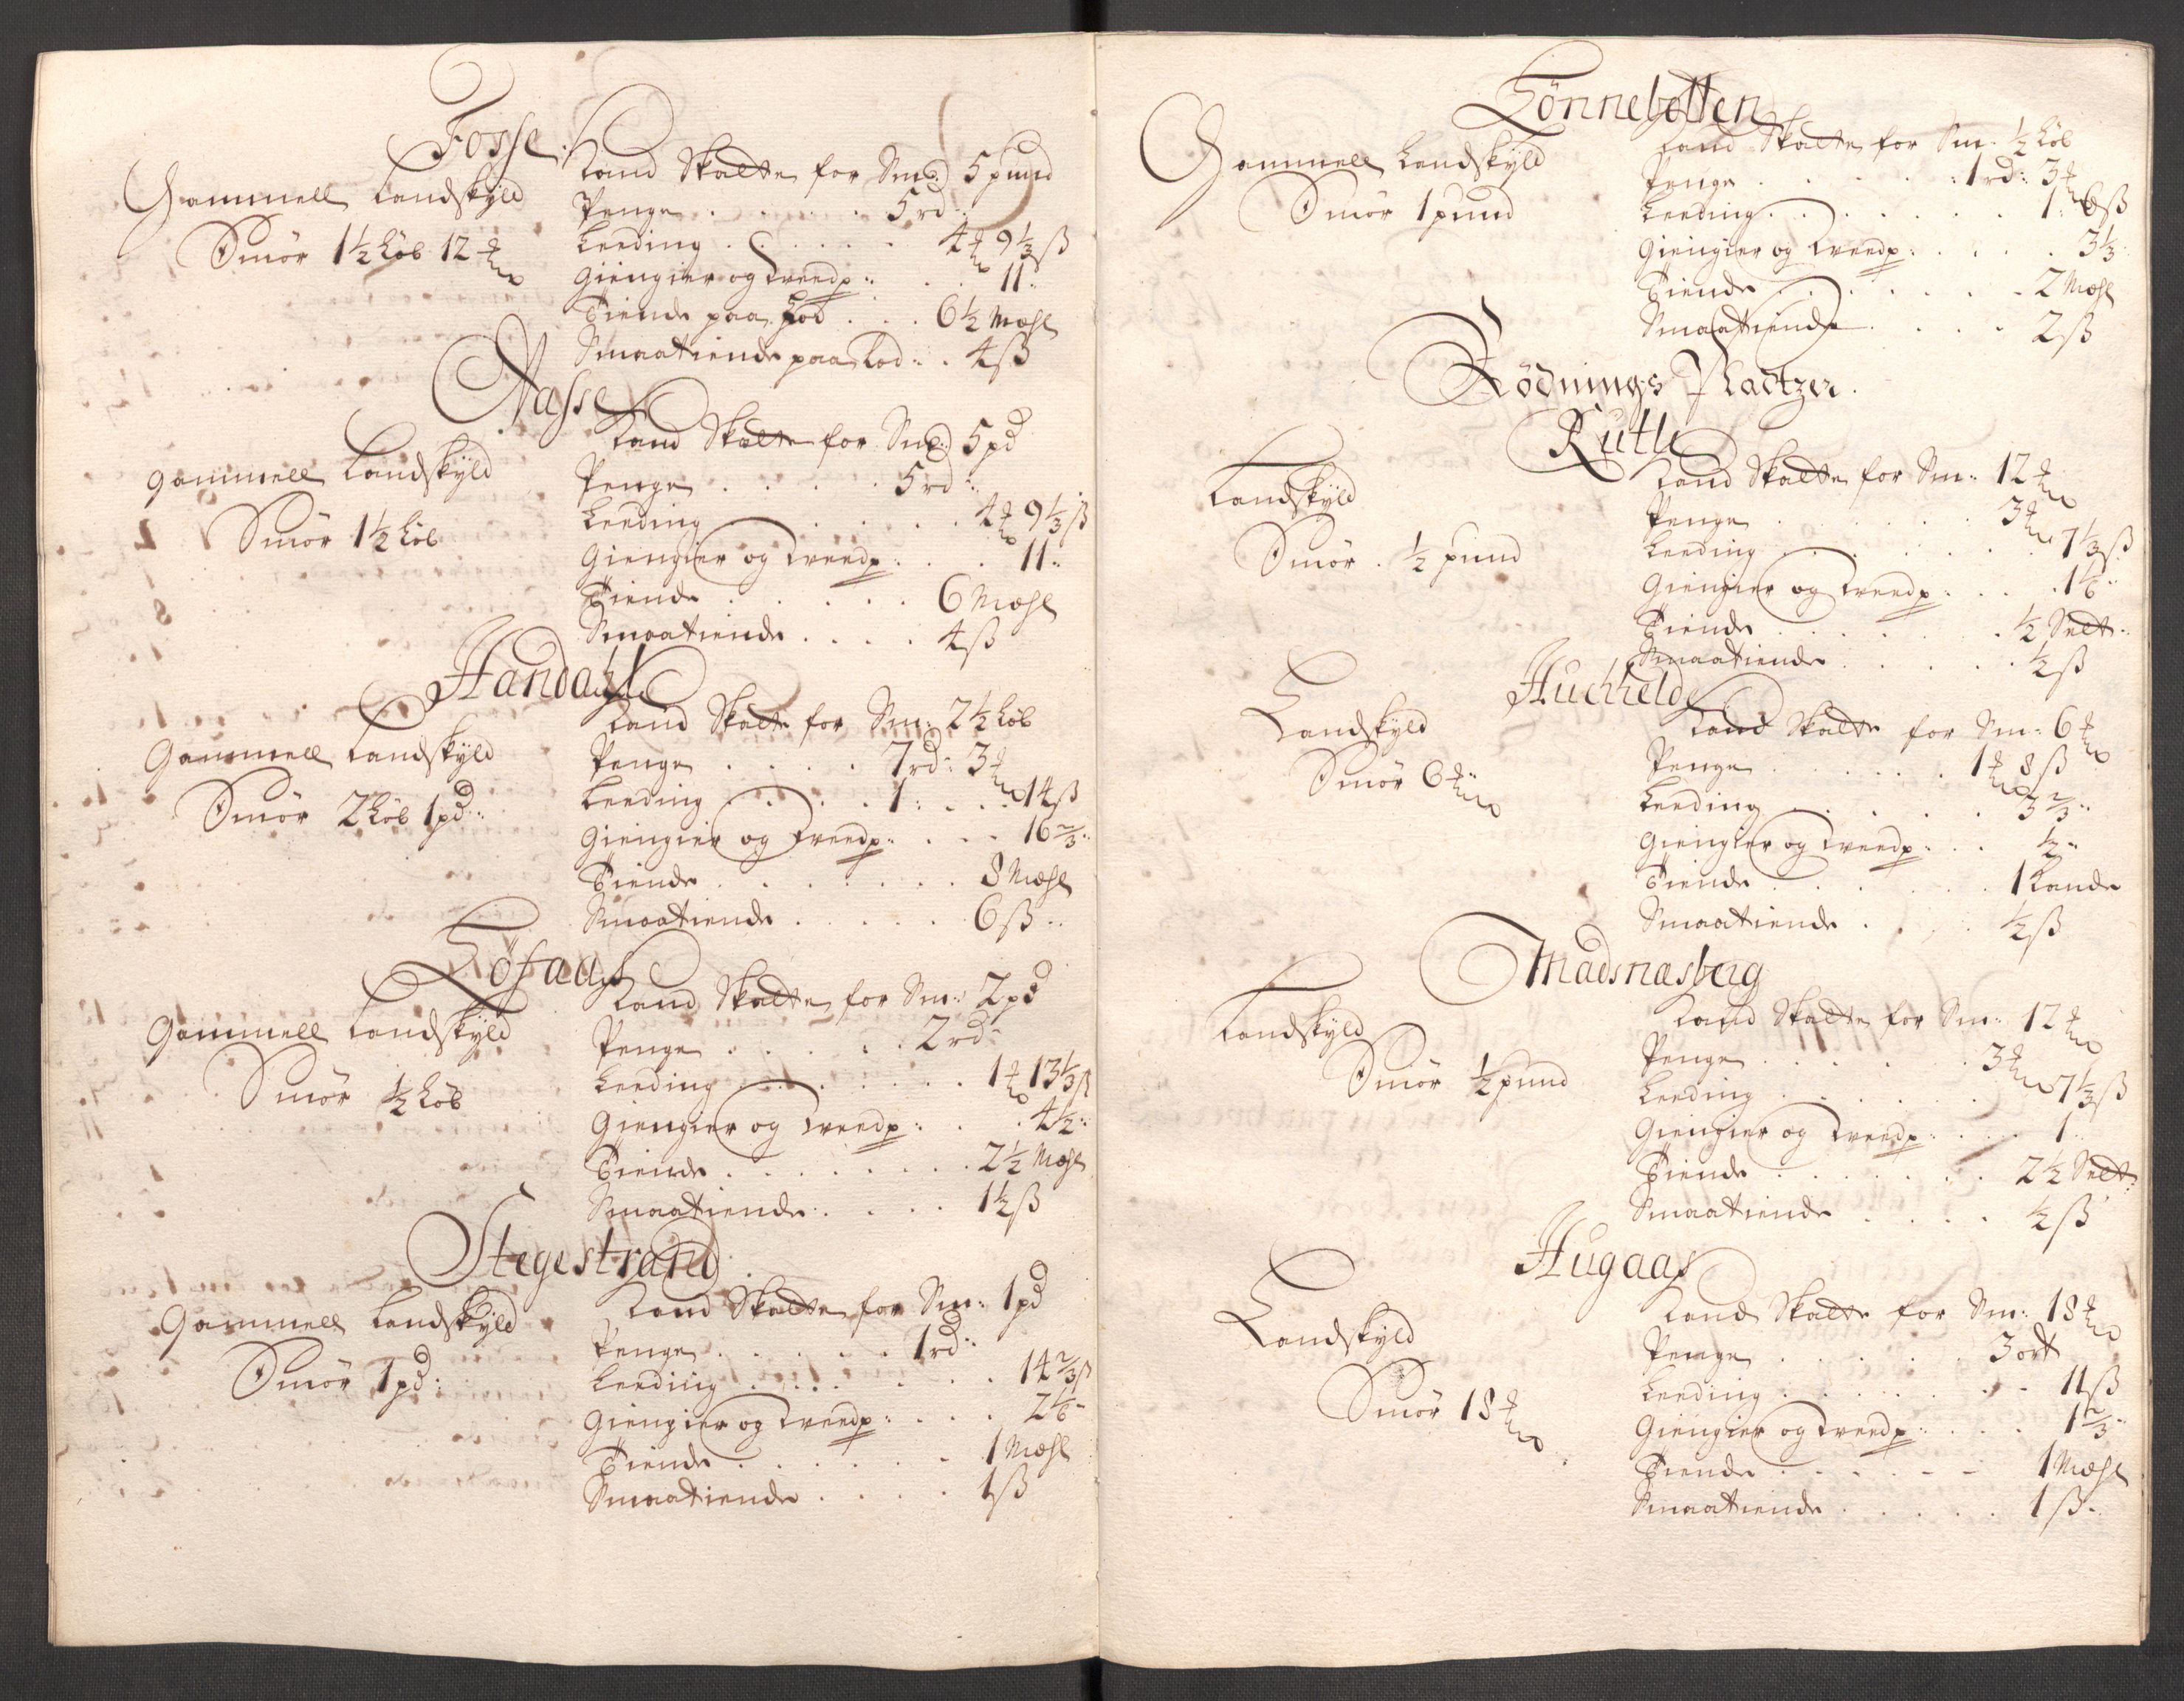 Fosse
Gammell Landskyld
Smör 1½ Løb 12 ℔
Land Skatten for Smør 5 pund
Penge . . . . 5 rd:
Leeding . . . . 4 ℔ 9⅓ ß
Giengier og Treedp: . . 11:
Tiende paa Lod . . . 6½ Mæhl
Smaatiende paa Lod: . 4 ß
Aasse
Gammell Landskyld
Smör 1½ Løb
Land Skatten for Smør: 5 pd
Penge . . . . 5 rd:
Leeding . . . . 4 ℔ 9⅓ ß
Giengier og Treedp: . . 11:
Tiende . . . . . 6 Mæhl
Smaatiende . . . . 4 ß
Handahl
Gammell Landskyld
Smör 2 Løb 1 pd:
Land Skatte for Sm: 2½ Løb
Penge . . . . 7 rd: 3 ℔
Leeding . . . . 1: . . . 14 ß
Giengier og Treedp: . . . 16⅔:
Tiende . . . . . . . 8 Mæhl
Smaatiende . . . . . 6 ß:
Löfaas
Gammell Landskyld
Smör ½ Løb
Land Skatten for Sm: 2 pd
Penge . . . . . 2 rd:
Leeding . . . . . 1 ℔ 13⅓ ß
Giengier og Treedp: . . . 4½:
Tiende . . . . . . . 2½ Mæhl
Smaatiende . . . . 1½ ß
Stegestrand
Gammell Landskyld
Smör 1 pd:
Land Skatten for Sm: 1 pd
Penge . . . . . 1 rd:
Leeding . . . . . . 14⅔ ß
Giengier og Treedp: . . . 2⅙
Tiende . . . . . . 1 Mæhl
Smaatiende . . . . 1 ß
Lönnebotten
Gammell Landskyld
Smör 1 pund
Land Skatten for Sm: ½ Løb
Penge . . . . . : 1 rd: 3 ℔
Leeding . . . . . . . 1: 6 ß
Giengier og Treedp: . . . . 3⅓
Tiende . . . . . . . 2 Mæhl
Smaatiende . . . . 2 ß
Rödnings Pladtzer.
Rutle
Landskyld
Smör . ½ pund
Land Skatten for Sm: 12 ℔
Penge . . . . . . 3 ℔
Leeding . . . . . . 7⅓ ß
Giengier og Treedp: . . . 1⅙:
Tiende . . . . . . ½ Selt:
Smaatiende . . . . . ½ ß
Landskyld
Smör 6 ℔
Land Skatte for Sm: 6 ℔
Penge . . . . . . 1 ℔ 8 ß
Leeding . . . . . 3⅔:
Giengier og Treedp: . . . ½:
Tiende . . . . . . 1 Kande
Smaatiende . . . . ½ ß
Madsnasberg
Landskyld
Smör ½ pund
Land Skatten for Sm: 12 ℔
Penge . . . . . . 3 ℔
Leeding . . . . . . 7⅓ ß
Giengier og Treedp: . . . 1:
Tiende . . . . . . 2½ Selt:
Smaatiende . . . . ½ ß
Hugaas
Landskyld
Smör 18 ℔
Land Skatte for Sm: 18 ℔
Penge . . . . . 3 ort
Leeding . . . . . . . 11 ß
Giengier og Treedp: . . . . 1⅔:
Tiende . . . . . . 1 Mæhl
Smaatiende . . . . . 1 ß: